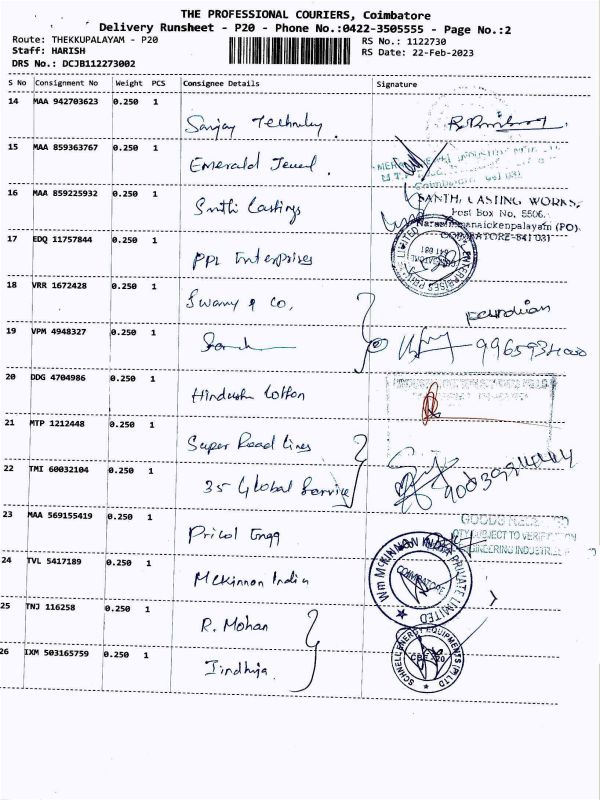 THE PROFESSIONAL COURIERS, Coimbatore
Delivery Runsheet - P20 - Phone No.:0422-3505555 - Page No.:2
Route: THEKKUPALAYAM - P20
Staff: HARISH
DRS No.: DCJB112273002
RS No.: 1122730
RS Date: 22-Feb-2023
S No Consignment No Weight PCS Consignee Details Signature
14 MAA 942703623 0.250 1 Sanjay
15 MAA 859363767 0.250 1 Emerald Jewel.
16 MAA 859225932 0.250 1 Santhi Castings
SANTHI CASTING WORKS,
Post Box No, 5506,
Narasimmanaickenpalayam (PO)
COIMBATORE-641 031
17 EDQ 11757844 0.250 1 PPL Enterprises
ENTERPRISES PRIVATE LIMITED
18 VRR 1672428 0.250 1 Swamy & Co.
19 VPM 4948327 0.250 1
20 DDG 4704986 0.250 1 Hindusthan Cotton
21 MTP 1212448 0.250 1 Super Road Lines
22 TMI 60032104 0.250 1 35 Global Service
23 MAA 569155419 0.250 1 Pricol Engg
GOODS RECEIVED
SUBJECT TO VERIFICATION
24 TVL 5417189 0.250 1 Mckinnon India
Wm MCKINNON INDIA PRIVATE LIMITED
COIMBATORE
25 TNJ 116258 0.250 1 R. Mohan
26 IXM 503165759 0.250 1
SCHNELL ENERGY EQUIPMENTS (P) LTD